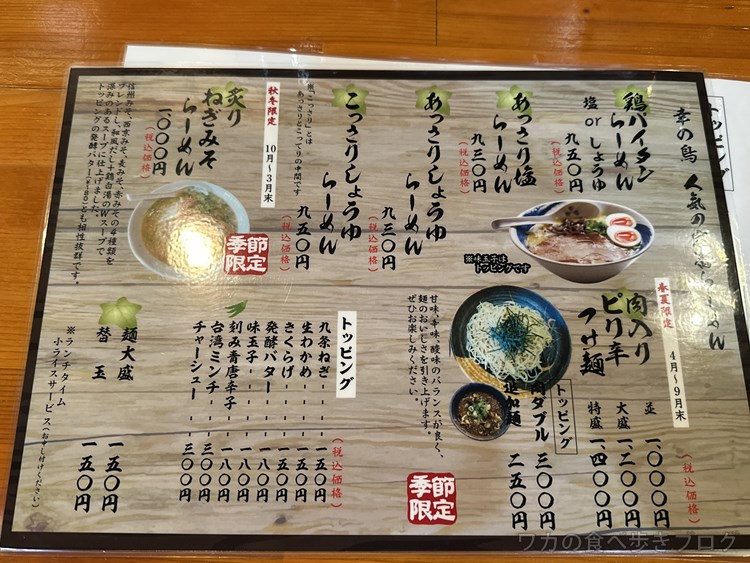 幸の鳥 人気の
鶏パイタンらーめん
塩orしょうゆ
九五〇円
(税込価格)
※味玉子は
トッピングです
あっさり塩らーめん
九三〇円
(税込価格)
あっさりしょうゆらーめん
九三〇円
(税込価格)
こっさりしょうゆらーめん
九五〇円
(税込価格)
あっさりとこってりの中間です
秋冬限定
10月~3月末
炙りねぎみそらーめん
一、〇〇〇円
(税込価格)
信州みそ、西京みそ、麦みそ、赤みその4種類を
ブレンドし、和風だしと鶏白湯のWスープで
深みのあるスープに仕上げました。
トッピングの発酵バターとも相性抜群です。
季節限定
春夏限定
4月~9月末
肉入りピリ辛つけ麺
(税込価格)
並 一〇〇〇円
大盛 一二〇〇円
特盛 一四〇〇円
トッピング
肉ダブル 三〇〇円
追加麺 二五〇円
甘味、辛味、酸味のバランスが良く、
麺のおいしさを引き上げます。
ぜひお楽しみください。
季節限定
トッピング
(税込価格)
九条ねぎ 一五〇円
生わかめ 一五〇円
きくらげ 一五〇円
発酵バター 一八〇円
味玉子 一八〇円
刻み青唐辛子 一八〇円
台湾ミンチ 三〇〇円
チャーシュー 三〇〇円
麺大盛 一五〇円
替玉 一五〇円
※ランチタイム
小ライスサービス(お申し付けください)
トッピング
ワカの食べ歩きブログ